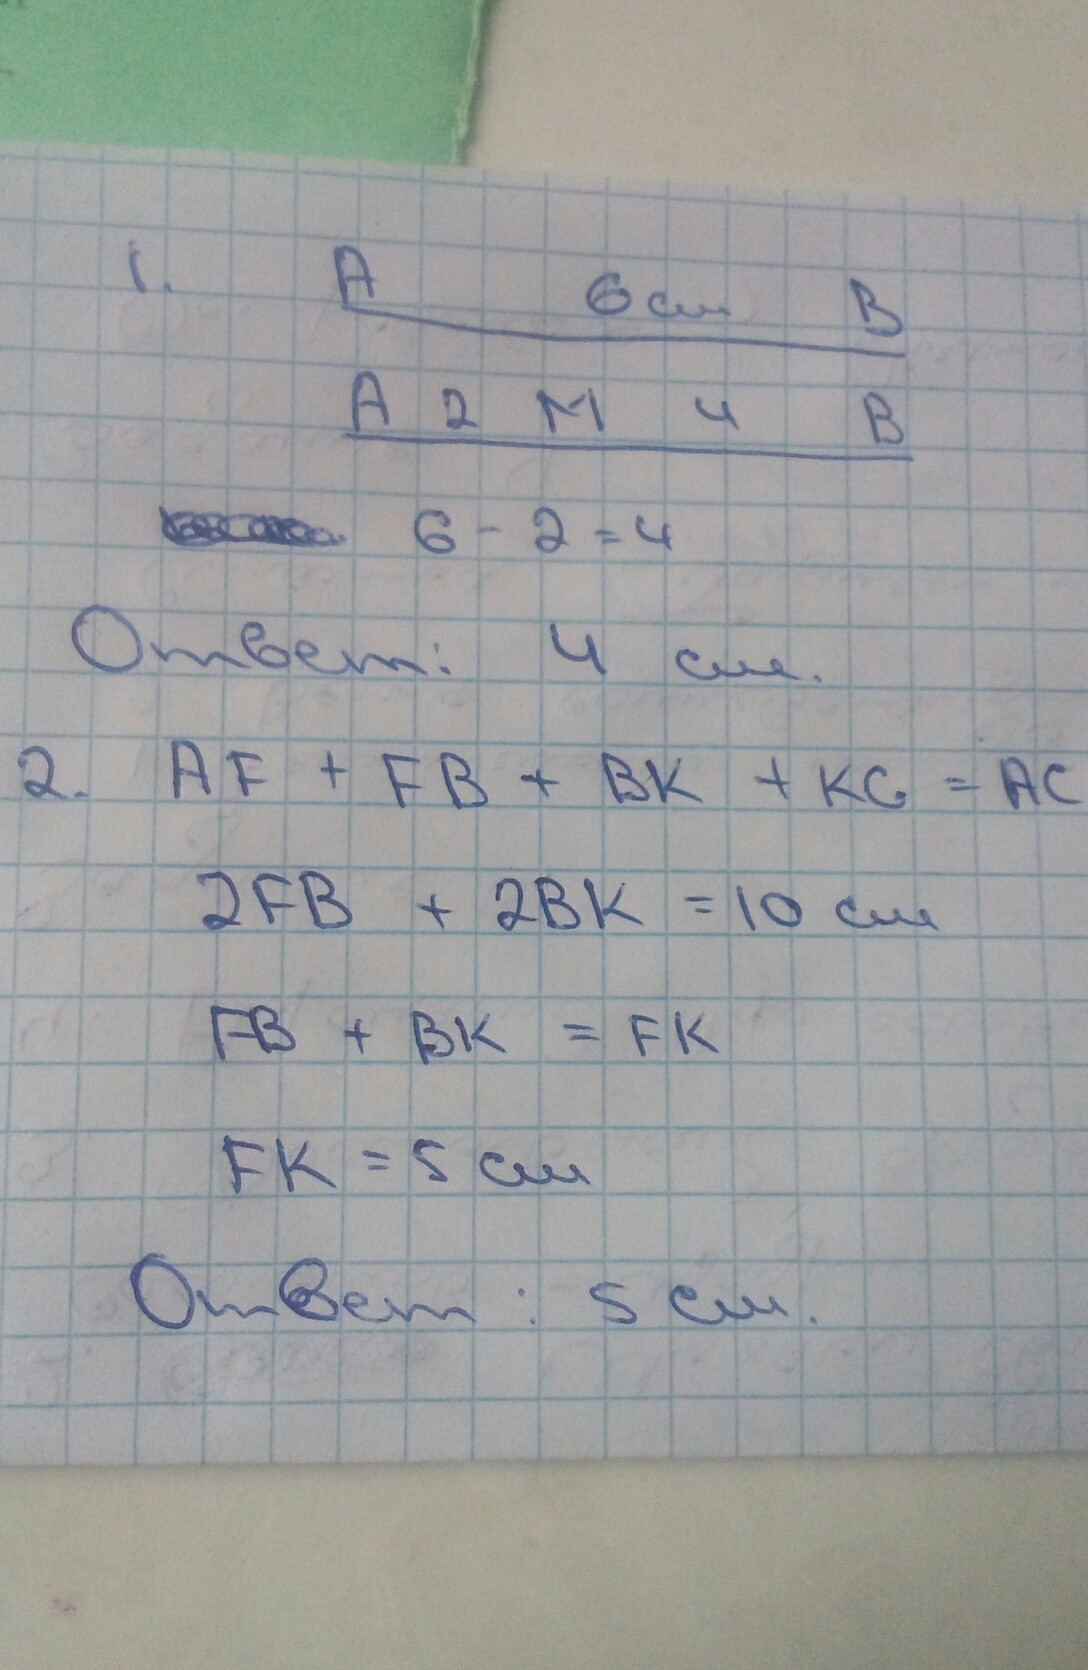 1. A 6 см B
A 2 M 4 B
6 - 2 = 4
Ответ: 4 см.
2. AF + FB + BK + KC = AC
2FB + 2BK = 10 см
FB + BK = FK
FK = 5 см
Ответ: 5 см.